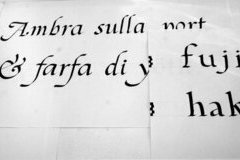 Ambra sulla port
& farfa di y fuji
hak